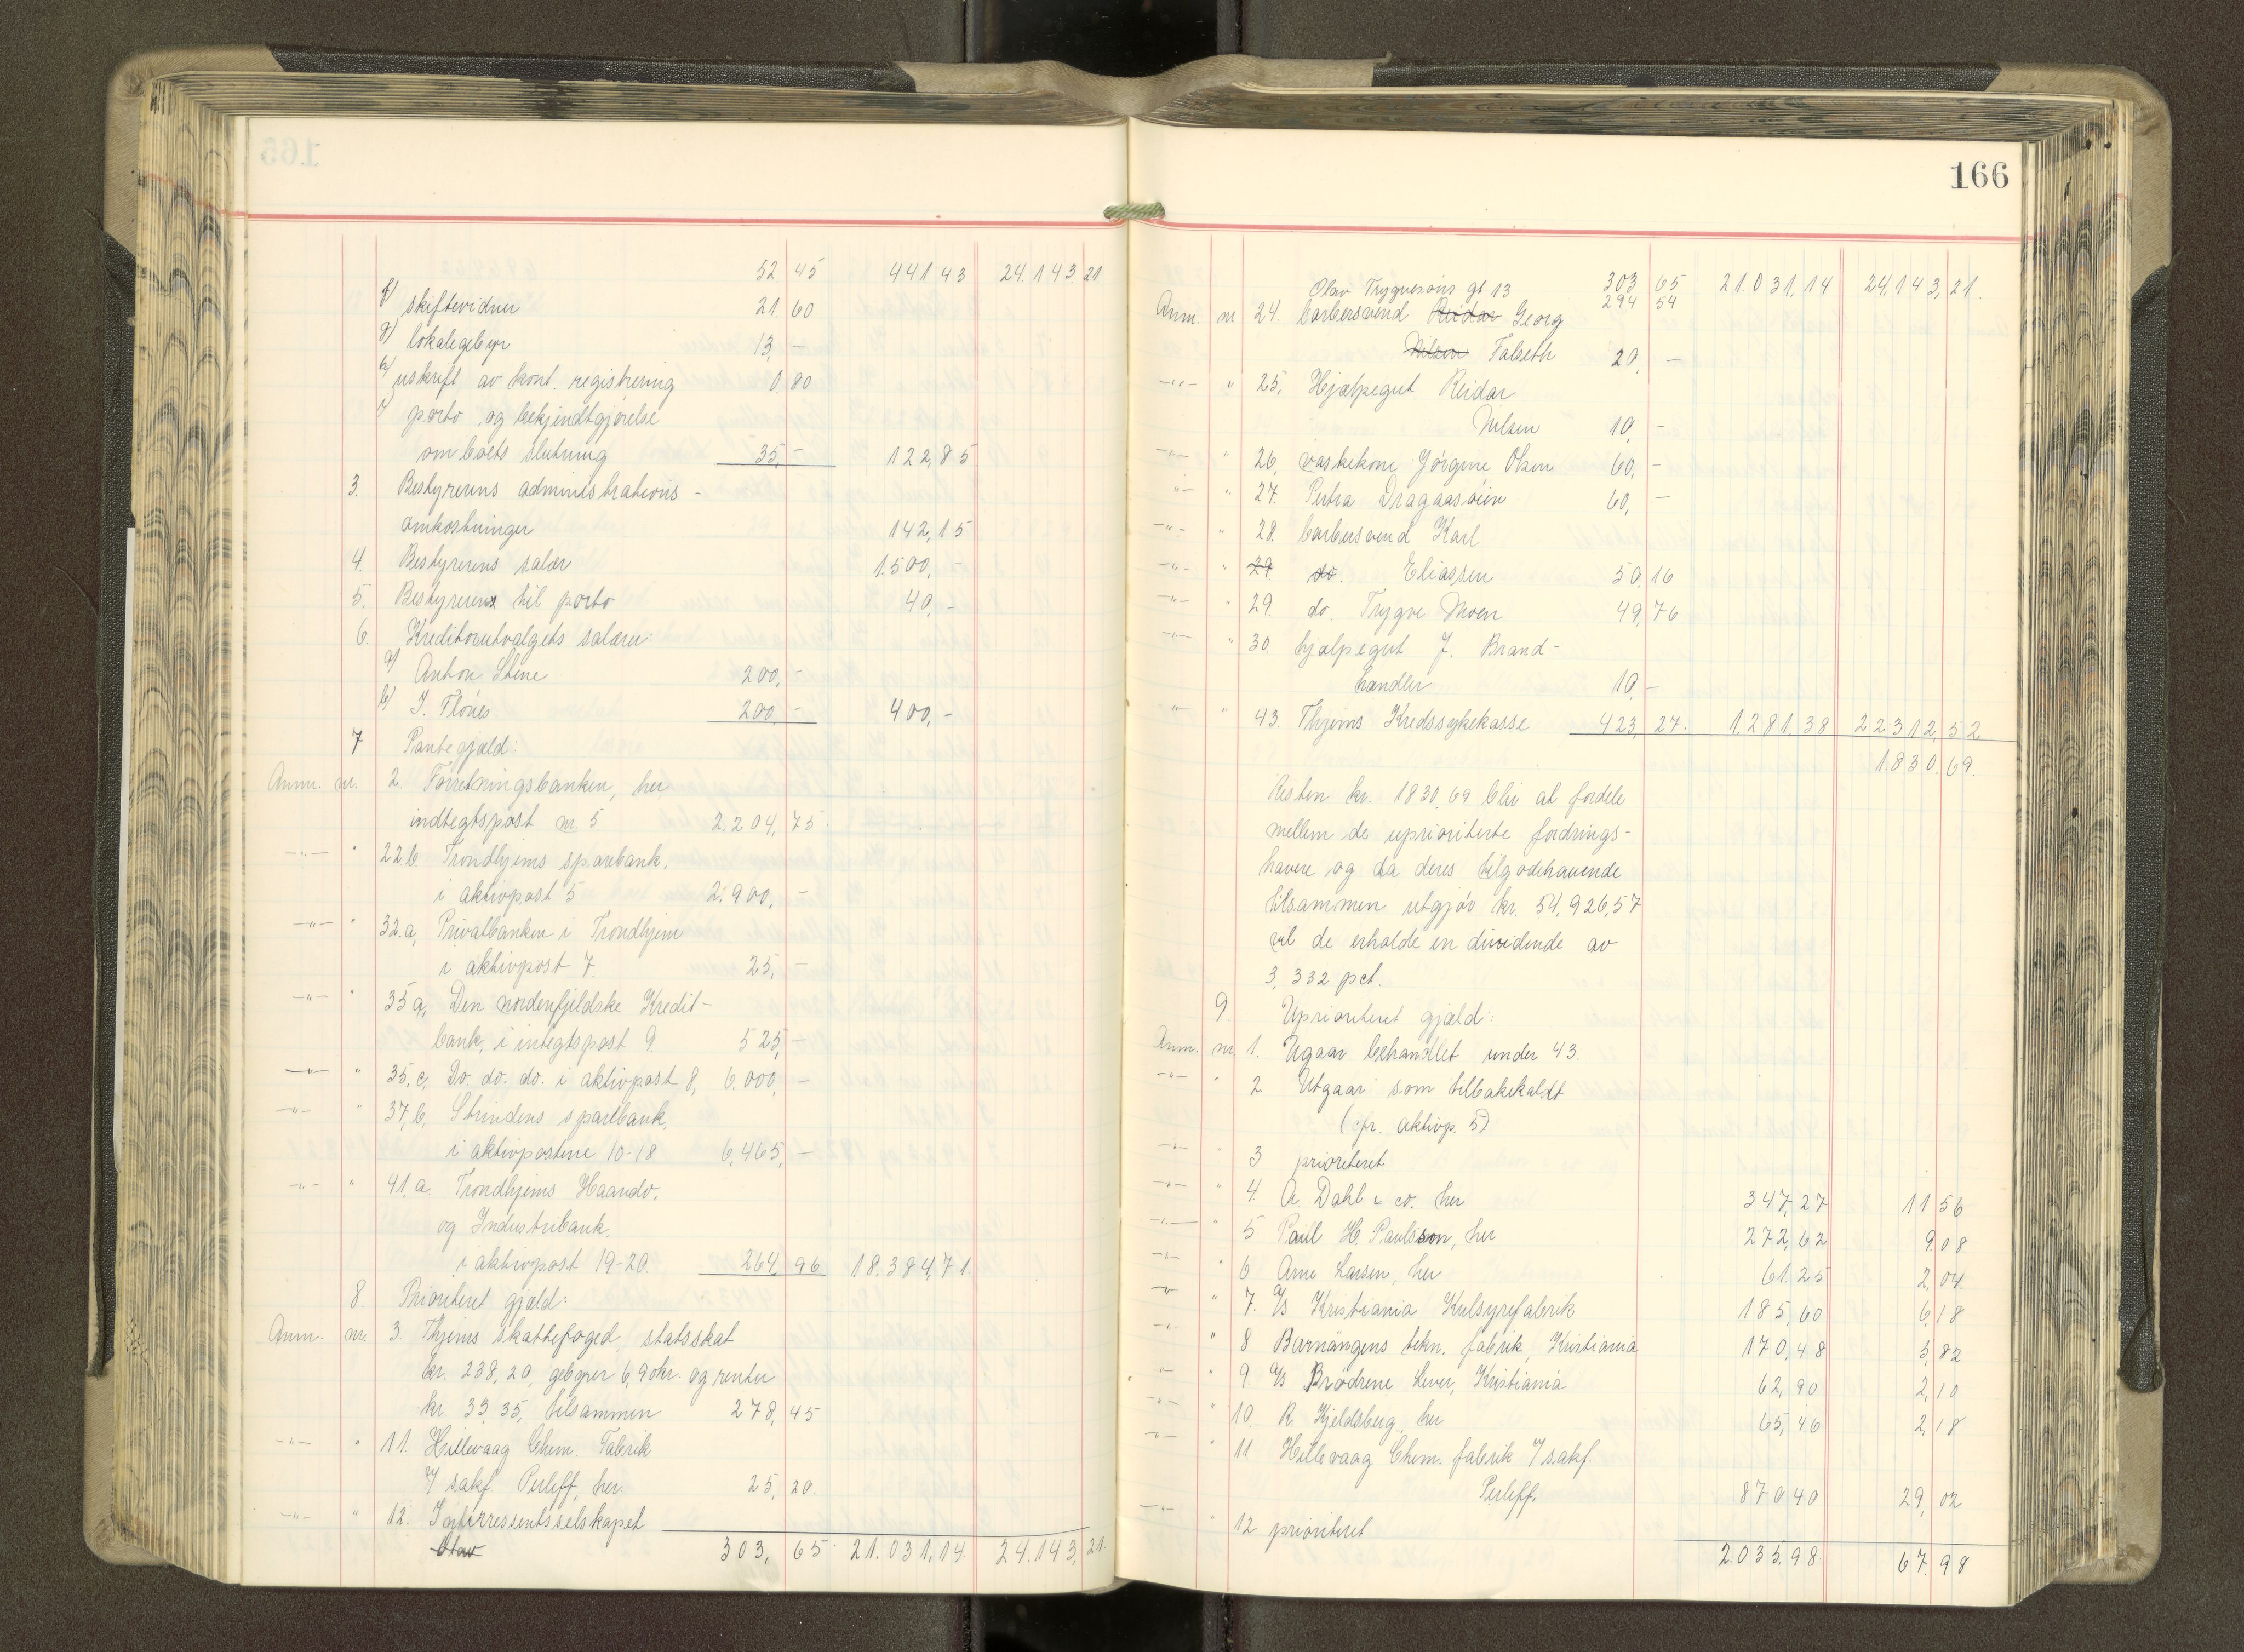 52 45 441 43 24.143 21
f) skiftevidner 21. 60
g) lokalegebyr 13, -
h) uskrift av kont. registrering 0. 80
i) porto og bekjendtgjørelse
om boets slutning 35, - 122,85
3. Bestyrerens administrations-
omkostninger 142,15
4. Bestyrerens salær 1.500, -
5. Bestyreren til porto 40, -
6. Kreditorutvalgets salærer:
a) Anton Stene 200, -
b) J. Flönes 200 - 400, -
7 Pantegjæld:
Anm. nr. 2. Forretningsbanken, her
indtegtspost nr. 5 2.204, 75
-"- " 22 b Trondhjems sparebank.
i aktivpost 5 2.900, -
-"- " 32.a, Privatbanken i Trondhjem
i aktivpost 7. 25, -
-"- " 35 a, Den nordenfjeldske Kredit-
bank, i integtspost 9. 525, -
-"- " 35, c, Do. do. do. i aktivpost 8, 6.000, -
-"- " 37, b, Strindens sparebank,
i aktivpostene 10-18 6,465, -
-"- " 41, a. Trondhjems Haandv.
og Industribank.
i aktivpost 19-20. 264 96 18.384,71
8. Prioritert gjæld:
Anm. nr. 3. Thjems skattefoged, statsskat
kr. 238,20, gebyrer 6,90kr. og renter
kr. 33,35, tilsammen 278, 45
-"- " 11. Hillevaag Chem. Fabrik
v/ sakf. Perleff, her. 25, 20.
-"- " 12. Interressentsselskapet
Olav 303, 65 21.031,14. 24.143, 21.
166
Olav Trygvesøns gt 13 303 65 21.031,14 24,143,21.
294 54
Anm. nr 24. barbersvend Reidar Georg
Nilsen Falseth 20, -
-"- " 25, Hjælpegut Reidar
Nilsen 10, -
-"- " 26, vaskekone Jørgine Olsen 60, -
-"- " 27. Petra Dragaasøien 60, -
-"- " 28. barbersvend Karl
-"- " 29 do. Eliassen 50, 16
-"- " 29. do. Trygve Moen 49, 76
-"- " 30. hjælpegut J. Brand-
handler 10, -
" " 43. Thjems Kredssykekasse 423, 27. 1.281,38 22.312,52
1.830.69.
Resten kr. 1830,69 blir at fordele
mellem de uprioriterte fordrings-
havere og da deres tilgodehavende
tilsammen utgjør kr. 54,926,57
vil de erholde en dividende av
3,332 pct.
9. Uprioritert gjæld:
Anm. nr. 1. Ugaar behandlet under 43.
-"- " 2 Utgaar som tilbakekaldt
(cfr. aktivp. 5)
-"- " 3 prioritert
-"- " 4. A. Dahl & co. her 347,27 11 56
-"- " 5 Paul H. Paulsson, her 272,62 9.08
-"- " 6 Arne Larsen, her 61.25 2,04.
-"- " 7. A/S Kristiania Kulsyrefabrik 185,60 6,18
-"- " 8 Barnängens tekn. fabrik, Kristiania 170,48 5,82
-"- " 9. A/S Brødrene Lever, Kristiania 62,90 2,10
-"- " 10. R. Kjeldsberg, her 65,46 2,18
-"- " 11. Hillevaag Chem. fabrik v/ sakf.
Perleff, 870.40 29,02
-"- " 12 prioritert
2.035,98. 67.98